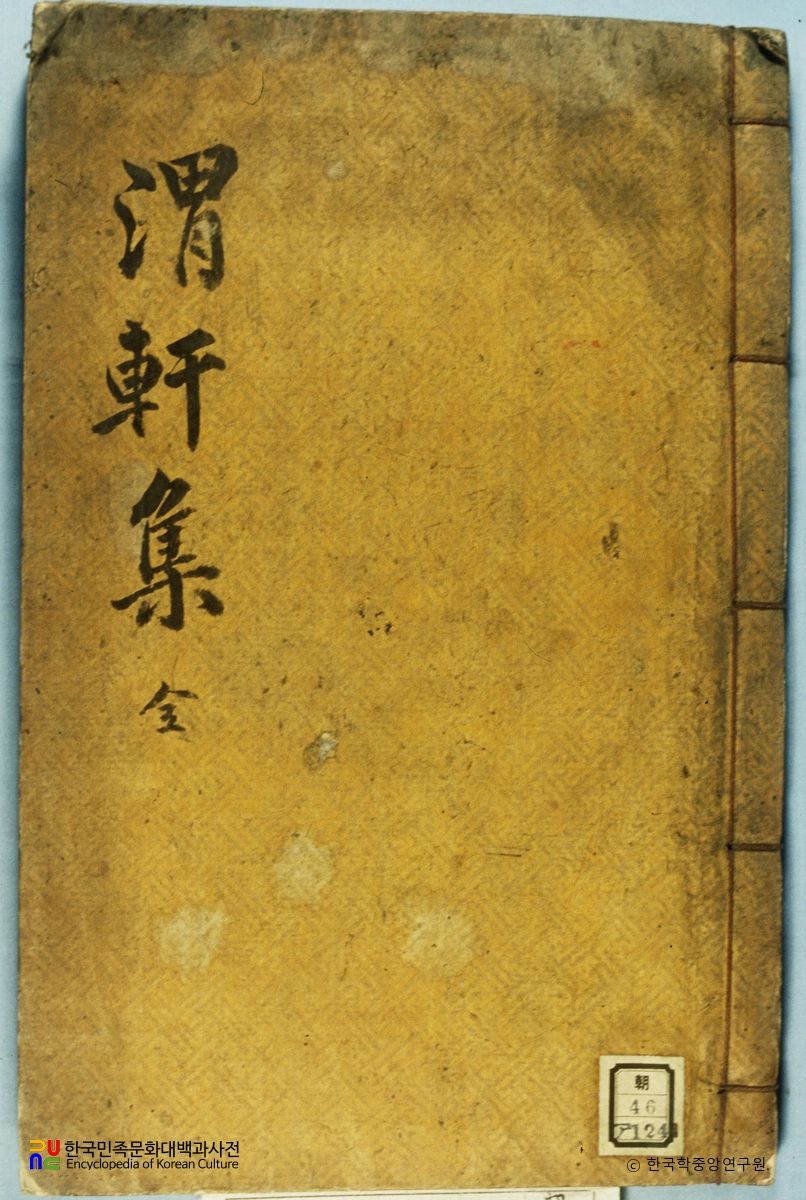 渭軒集 全
朝
46
ア124
한국민족문화대백과사전
Encyclopedia of Korean Culture
ⓒ 한국학중앙연구원